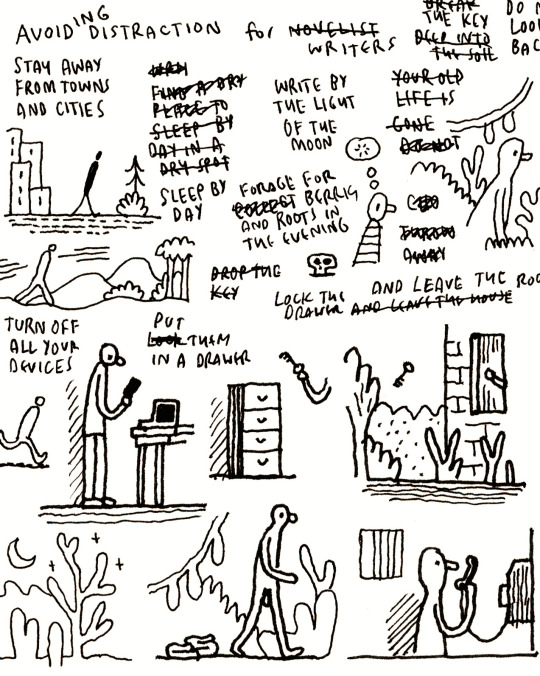 AVOIDING DISTRACTION for NOVELIST
WRITERS
STAY AWAY
FROM TOWNS
AND CITIES
FIND A DRY
PLACE TO
SLEEP BY
DAY IN A
DRY SPOT
SLEEP BY
DAY
WRITE BY
THE LIGHT
OF THE
MOON
FORAGE FOR
BERRIG
AND ROOTS IN
THE EVENING
BREAK
THE KEY
DEEP INTO
THE SOIL
DO N
LOO
BAC
YOUR OLD
LIFE IS
GONE
DO NOT
AWAY
DROP THE
KEY
LOCK THE
DRAWER AND LEAVE THE HOUSE
AND LEAVE THE ROO
TURN OFF
ALL YOUR
DEVICES
PUT
LOOK THEM
IN A DRAWER